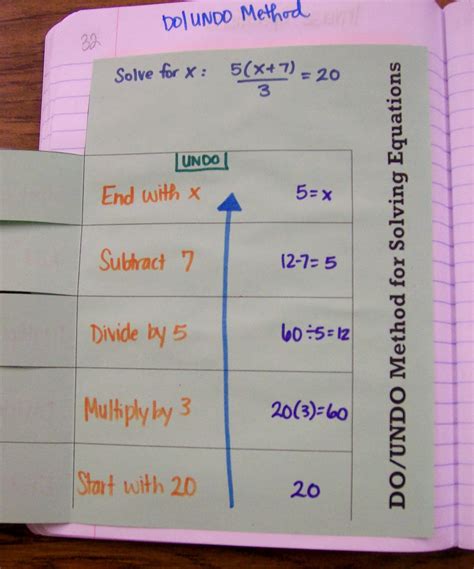 DO/UNDO Method
32
Solve for x: 5(x+7)/3 = 20
UNDO
End with x 5=x
Subtract 7 12-7=5
Divide by 5 60÷5=12
Multiply by 3 20(3)=60
Start with 20 20
DO/UNDO Method for Solving Equations